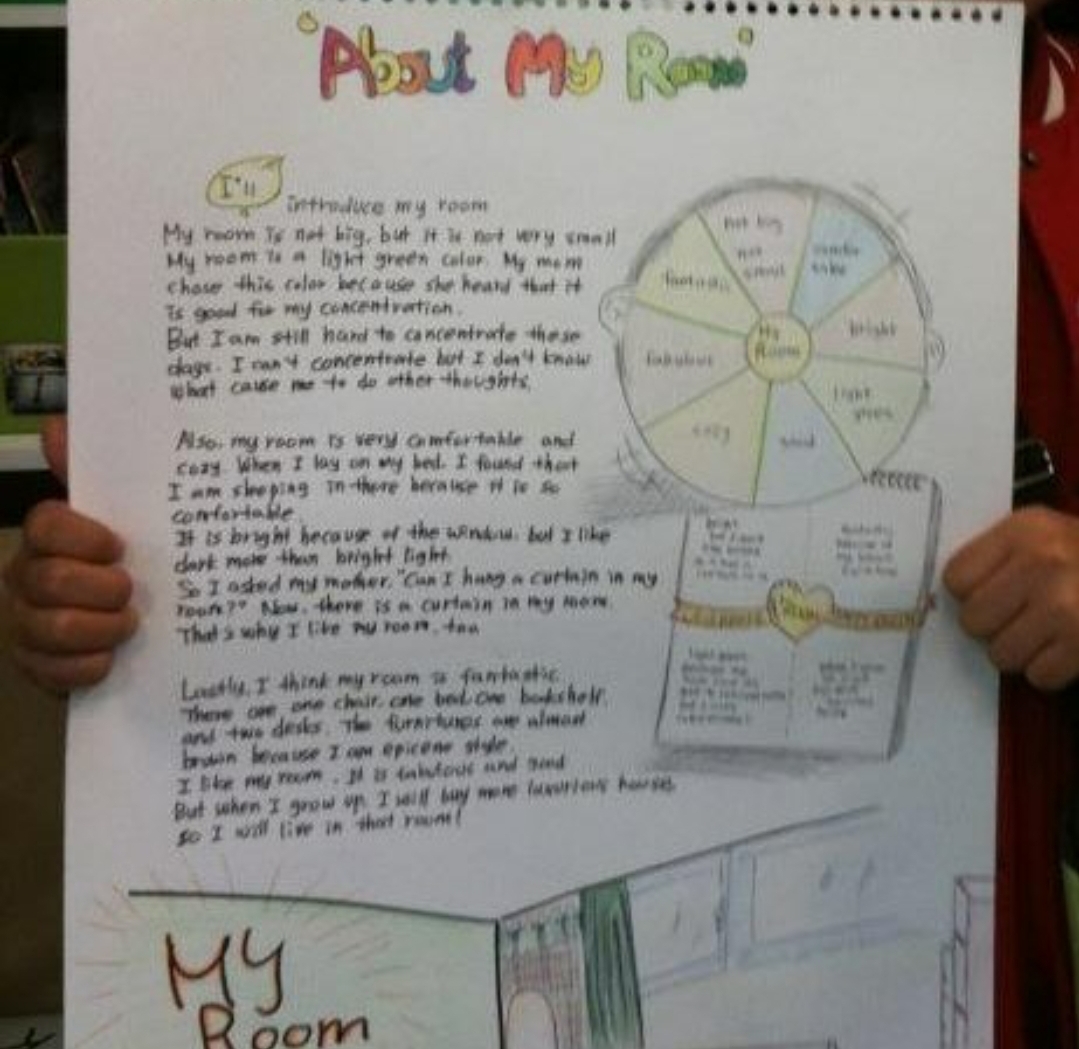 'About My Room'
I'll
introduce my room
My room is not big, but it is not very small
My room is a light green color. My mom
chose this color because she heard that it
is good for my concentration.
But I am still hard to concentrate these
days. I can't concentrate but I don't know
what cause me to do other thoughts.
Also, my room is very comfortable and
cozy. When I lay on my bed. I found that
I am sleeping in there because it is so
comfortable.
It is bright because of the window. but I like
dark more than bright light.
So I asked my mother. "Can I hang a curtain in my
room?" Now, there is a curtain in my room.
That's why I like my room, too
Lastly, I think my room is fantastic.
There are one chair, one bed, one bookshelf.
and two desks. The furnitures are almost
brown because I am epicene style.
I like my room. It is fabulous and good
But when I grow up, I will buy more luxurious houses
so I will live in that room!
not big
not
small
bright
light
green
good
cozy
fabulous
fantastic
My
Room
MY
Room